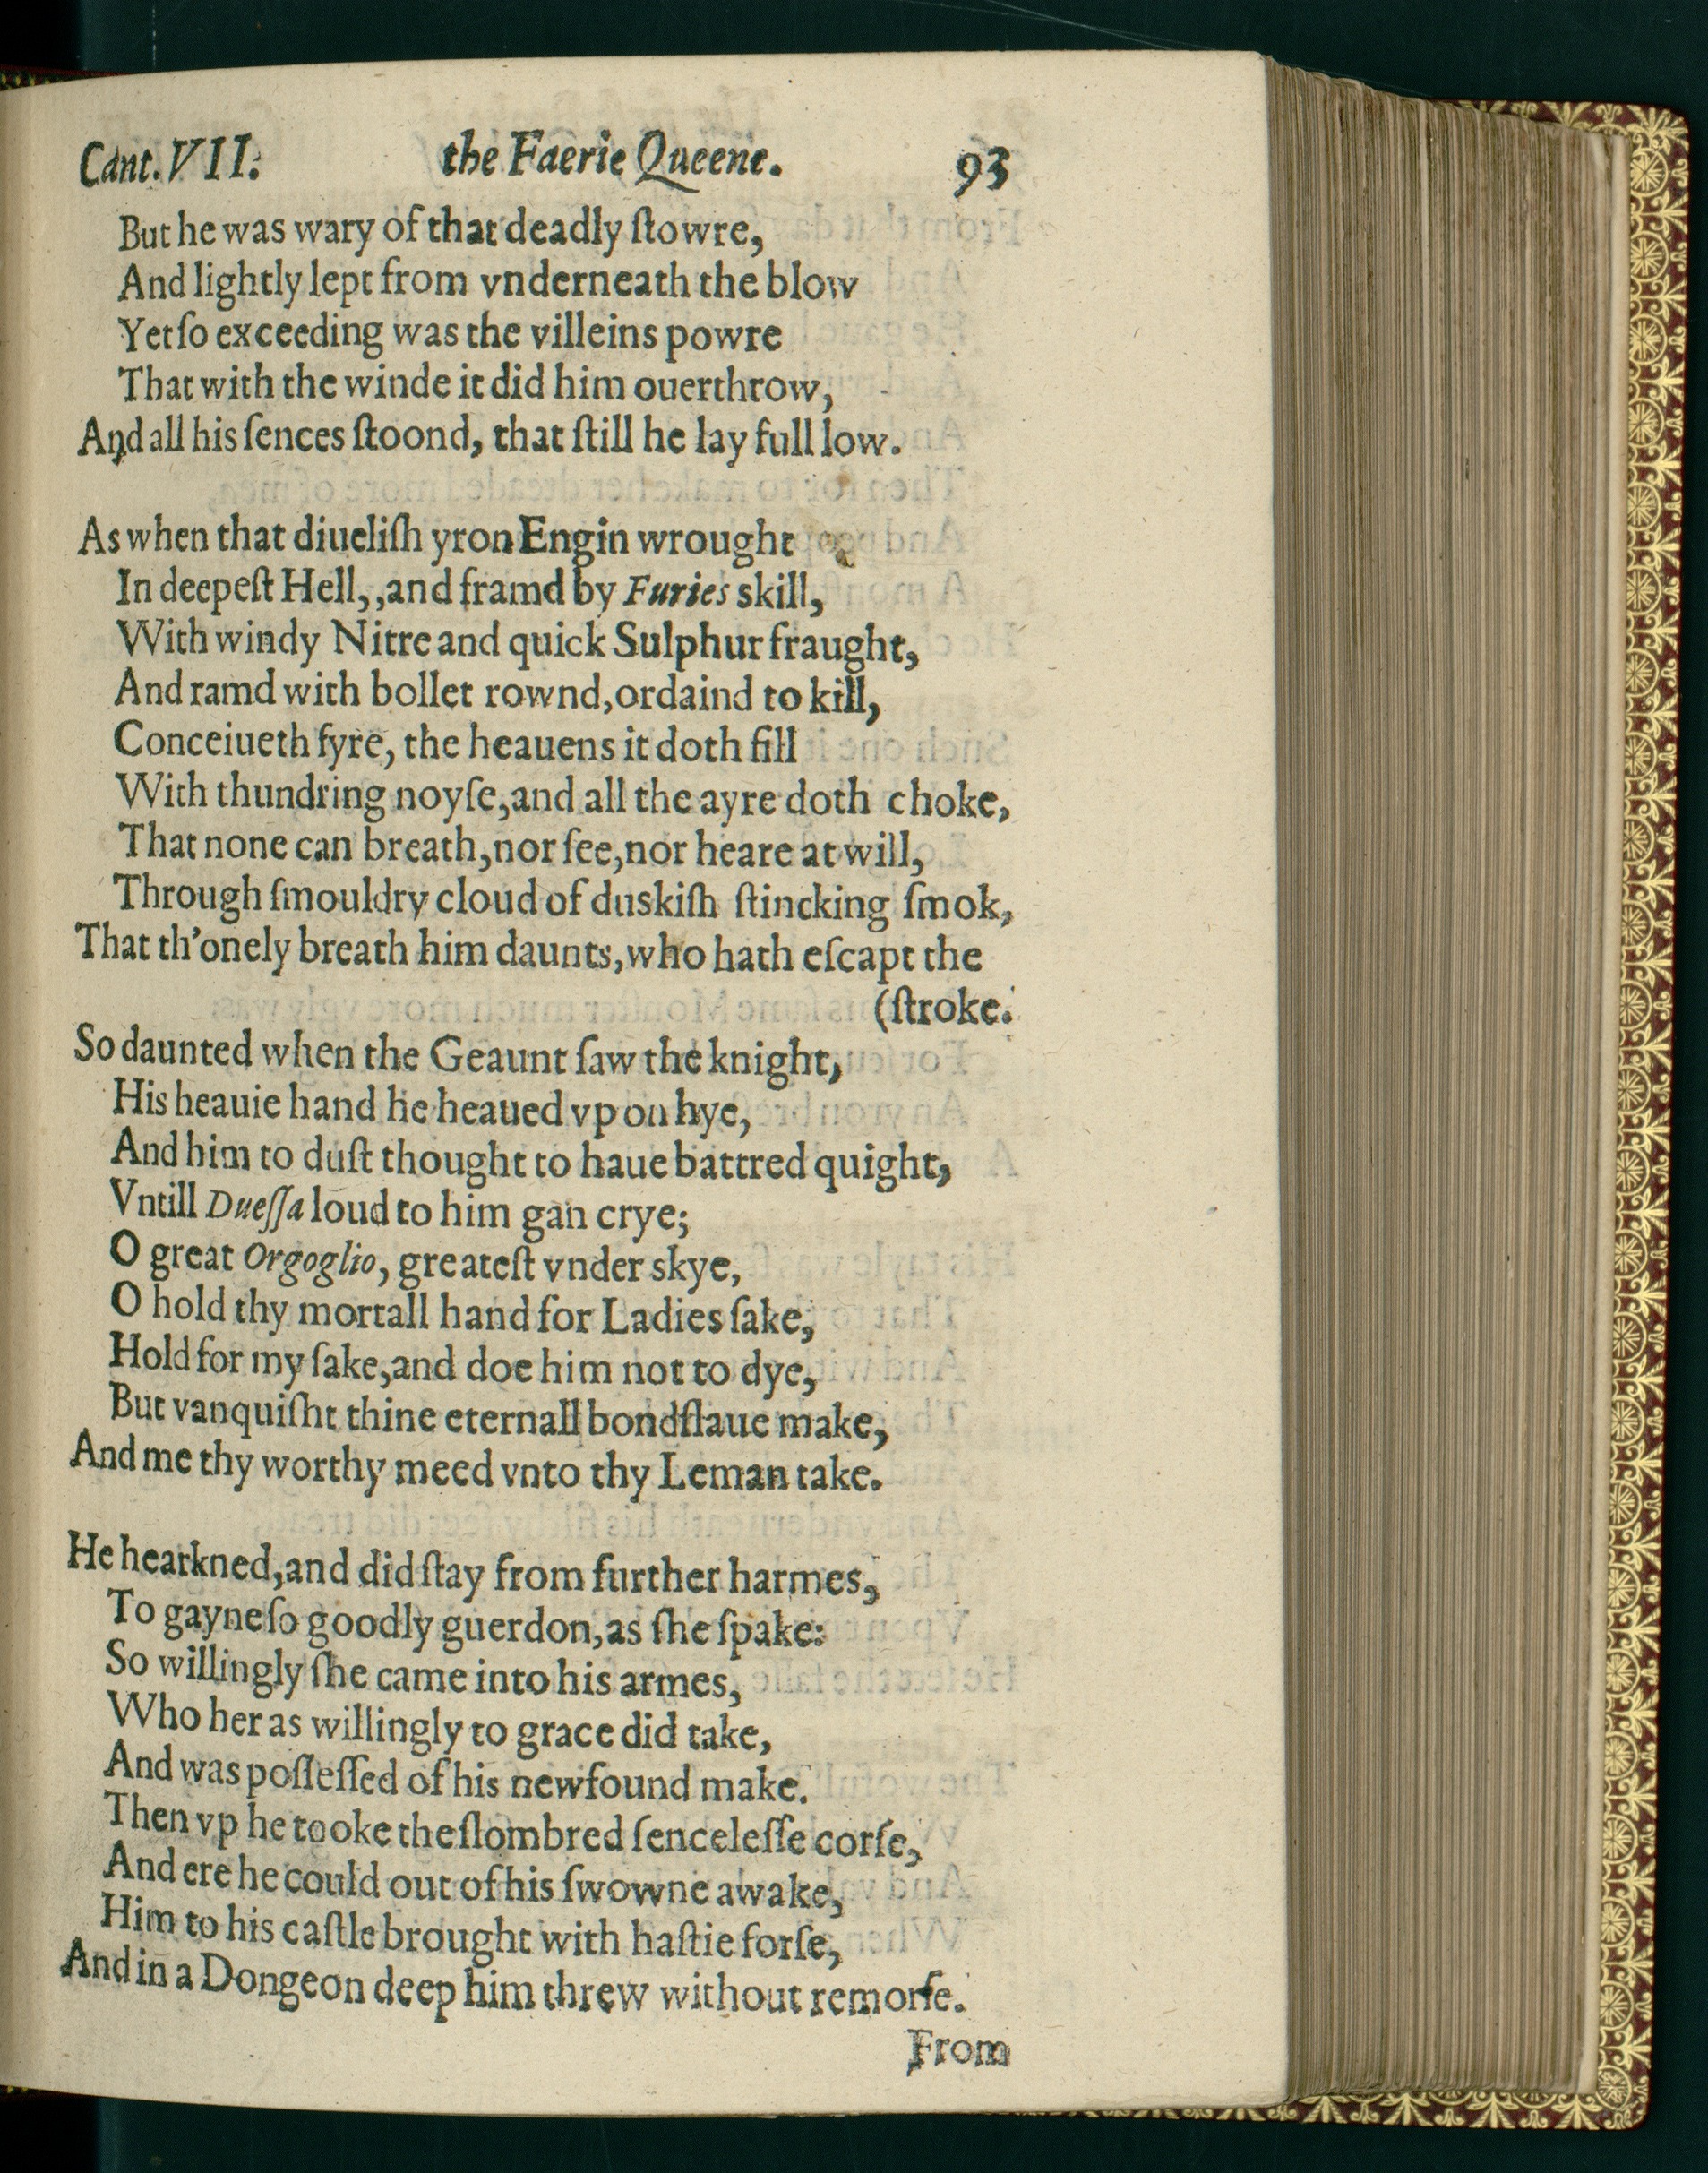 Cant. VII. the Faerie Queene. 93
But he was wary of that deadly ſtowre,
And lightly lept from vnderneath the blow
Yet ſo exceeding was the villeins powre
That with the winde it did him ouerthrow,
And all his ſences ſtoond, that ſtill he lay full low.
As when that diueliſh yron Engin wrought
In deepeſt Hell,, and framd by Furies skill,
With windy Nitre and quick Sulphur fraught,
And ramd with bollet rownd, ordaind to kill,
Conceiueth fyre, the heauens it doth fill
With thundring noyſe, and all the ayre doth choke,
That none can breath, nor ſee, nor heare at will,
Through ſmouldry cloud of duskiſh ſtincking ſmok,
That th'onely breath him daunts, who hath eſcapt the
(ſtroke.
So daunted when the Geaunt ſaw the knight,
His heauie hand he heaued vp on hye,
And him to duſt thought to haue battred quight,
Vntill Dueſſa loud to him gan crye;
O great Orgoglio, greateſt vnder skye,
O hold thy mortall hand for Ladies ſake,
Hold for my ſake, and doe him not to dye,
But vanquiſht thine eternall bondſlaue make,
And me thy worthy meed vnto thy Leman take.
He hearkned, and did ſtay from further harmes,
To gayne ſo goodly guerdon, as ſhe ſpake:
So willingly ſhe came into his armes,
Who her as willingly to grace did take,
And was poſſeſſed of his newfound make.
Then vp he tooke the ſlombred ſenceleſſe corſe,
And ere he could out of his ſwowne awake,
Him to his caſtle brought with haſtie forſe,
And in a Dongeon deep him threw without remorſe.
From